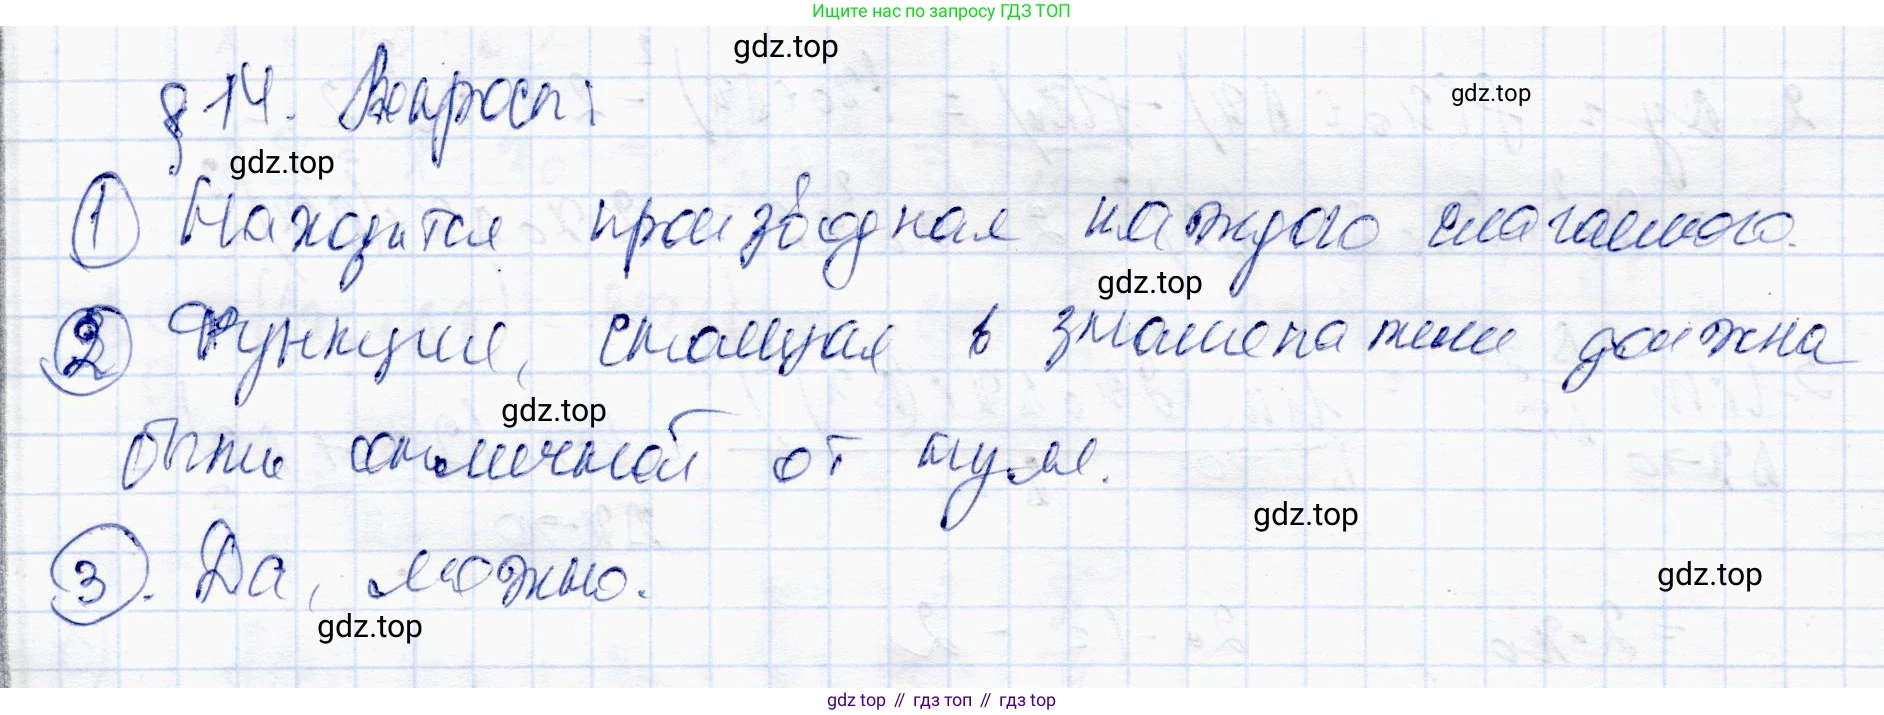 Ищите нас по запросу ГДЗ ТОП
gdz.top
§ 14. Вопросы:
gdz.top
gdz.top
① Находится производная каждого слагаемого.
gdz.top
② Функция, стоящая в знаменателе должна
gdz.top
быть отличной от нуля.
gdz.top
③. Да, можно.
gdz.top
gdz.top
gdz top // гдз топ // гдз top